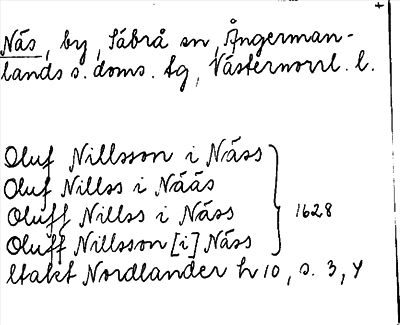 Näs, by, Säbrå sn, Ångerman-
lands s. doms. tg, Västernorrl. l.
Oluf Nillsson i Näss
Oluf Nillss i Nääs
Oluff Nillss i Näss 1628
Oluff Nillsson [i] Näss
Utakt Nordlander h 10, s. 3, 4